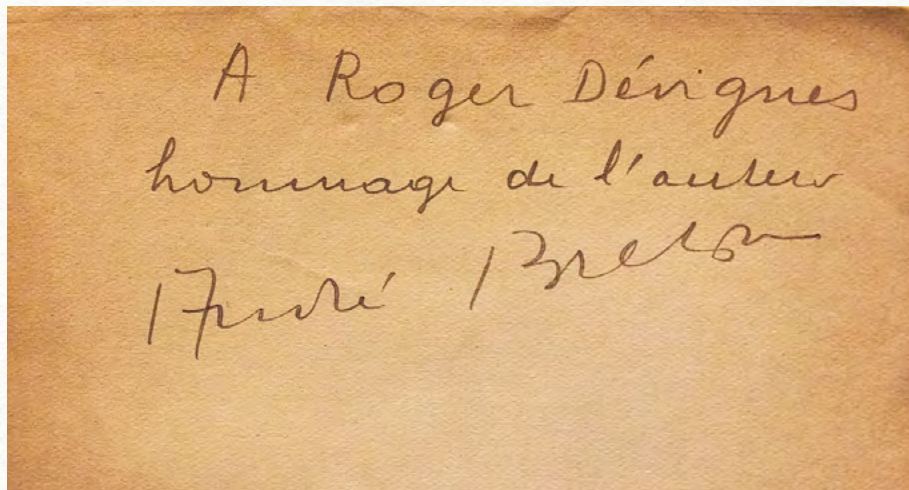 A Roger Dévignes
hommage de l'auteur
André Breton